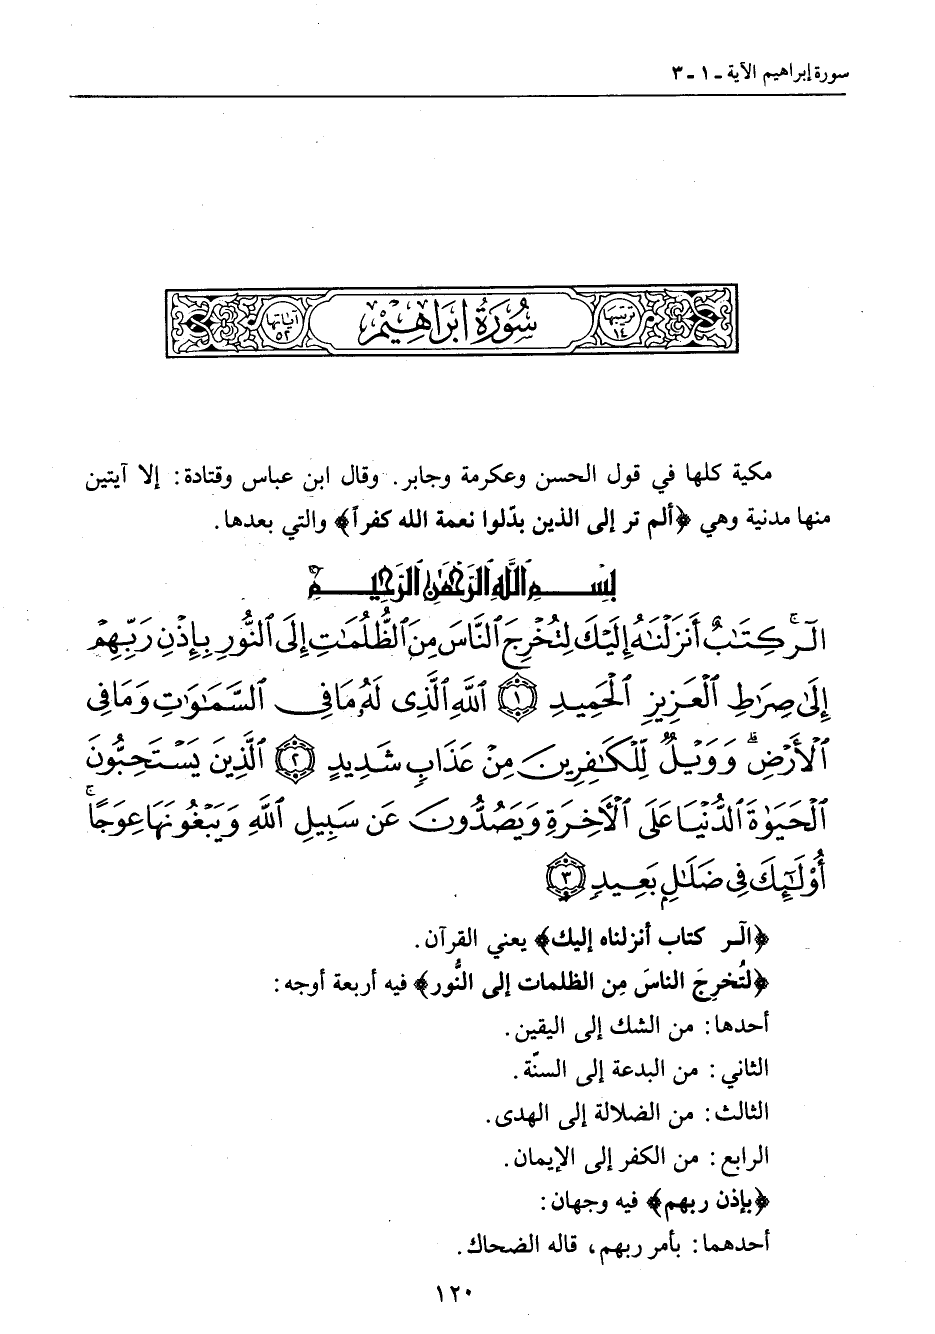 سورة إبراهيم الآية ـ ١ ـ ٣
ترتيبها ١٤ سُورَةُ ابْرَاهِيمْ آياتها ٥٢
مكية كلها في قول الحسن وعكرمة وجابر. وقال ابن عباس وقتادة: إلا آيتين
منها مدنية وهي ﴿ألم تر إلى الذين بدّلوا نعمة الله كفراً﴾ والتي بعدها.
بِسْمِ ٱللَّهِ ٱلرَّحْمَٰنِ ٱلرَّحِيمِ
الٓرۚ كِتَٰبٌ أَنزَلْنَٰهُ إِلَيْكَ لِتُخْرِجَ ٱلنَّاسَ مِنَ ٱلظُّلُمَٰتِ إِلَى ٱلنُّورِ بِإِذْنِ رَبِّهِمْ
إِلَىٰ صِرَٰطِ ٱلْعَزِيزِ ٱلْحَمِيدِ ﴿١﴾ ٱللَّهِ ٱلَّذِى لَهُۥ مَا فِى ٱلسَّمَٰوَٰتِ وَمَا فِى
ٱلْأَرْضِۗ وَوَيْلٌ لِّلْكَٰفِرِينَ مِنْ عَذَابٍ شَدِيدٍ ﴿٢﴾ ٱلَّذِينَ يَسْتَحِبُّونَ
ٱلْحَيَوٰةَ ٱلدُّنْيَا عَلَى ٱلْأَخِرَةِ وَيَصُدُّونَ عَن سَبِيلِ ٱللَّهِ وَيَبْغُونَهَا عِوَجًاۚ
أُوْلَٰٓئِكَ فِى ضَلَٰلٍۭ بَعِيدٍ ﴿٣﴾
﴿الٓر كتاب أنزلناه إليك﴾ يعني القرآن.
﴿لتُخرِجَ الناسَ مِن الظلمات إلى النُّور﴾ فيه أربعة أوجه:
أحدها: من الشك إلى اليقين.
الثاني: من البدعة إلى السنّة.
الثالث: من الضلالة إلى الهدى.
الرابع: من الكفر إلى الإيمان.
﴿بإذن ربهم﴾ فيه وجهان:
أحدهما: بأمر ربهم، قاله الضحاك.
١٢٠